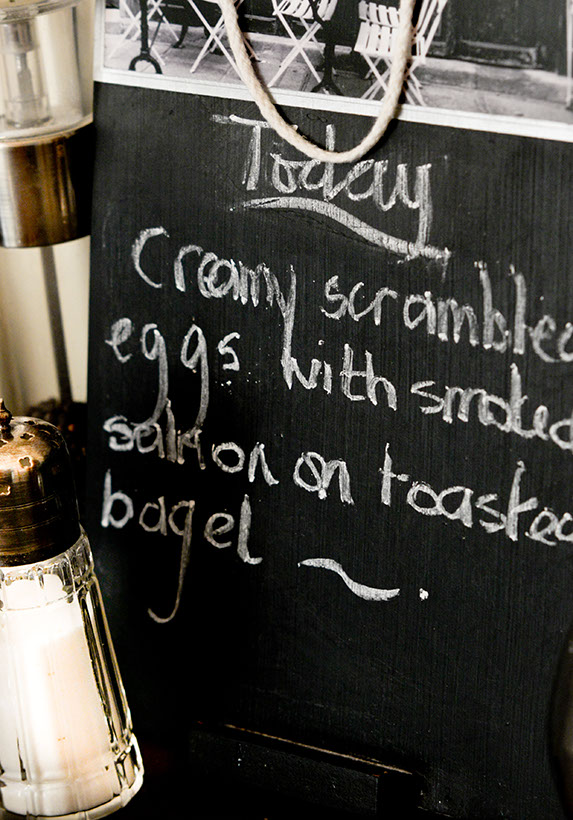 Today
Creamy scrambled
eggs with smoked
salmon on toasted
bagel ~.